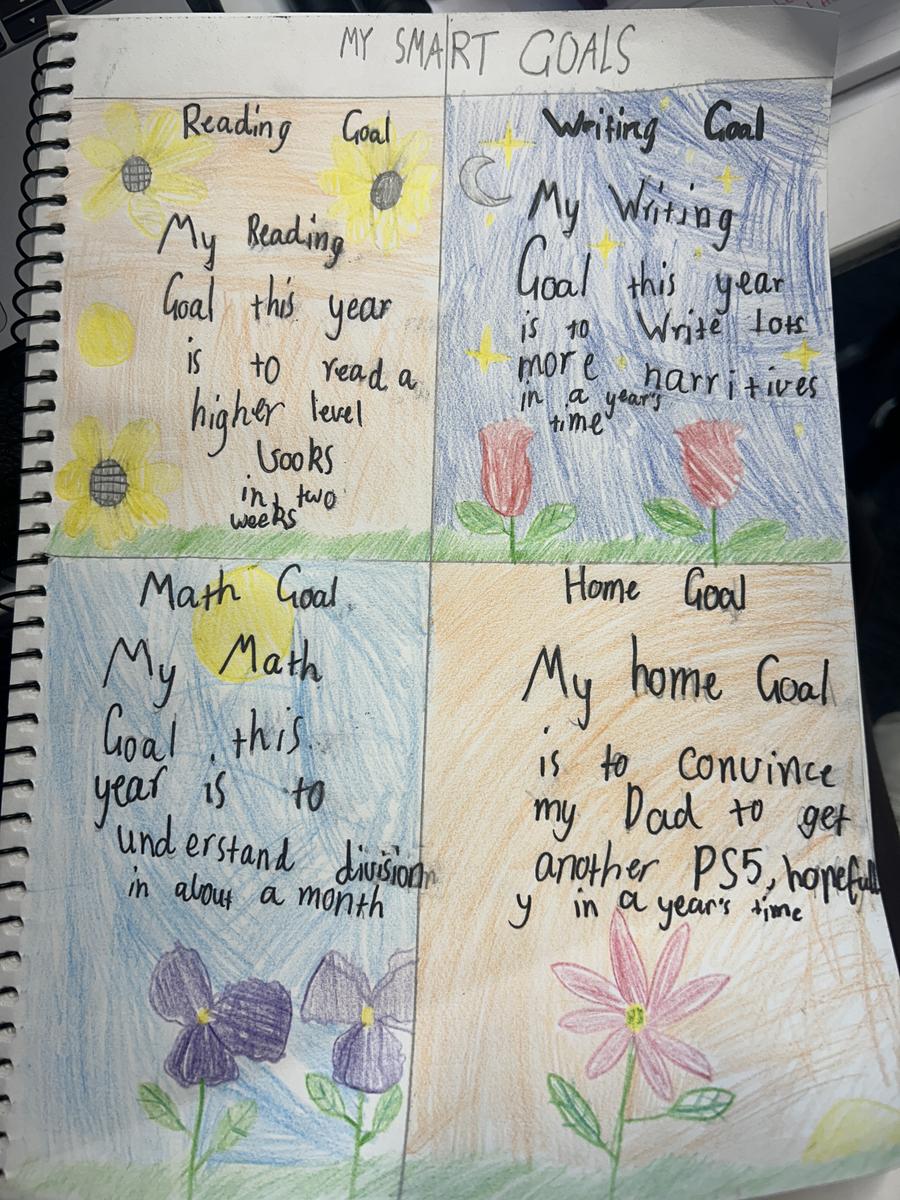 MY SMART GOALS
Reading Goal
My Reading
Goal this year
is to read a
higher level
books
in two
weeks
Writing Goal
My Writing
Goal this year
is to write lots
more narritives
in a year's
time
Math Goal
My Math
Goal this
year is to
understand division
in about a month
Home Goal
My home Goal
is to convince
my Dad to get
another PS5, hopefull
y in a year's time